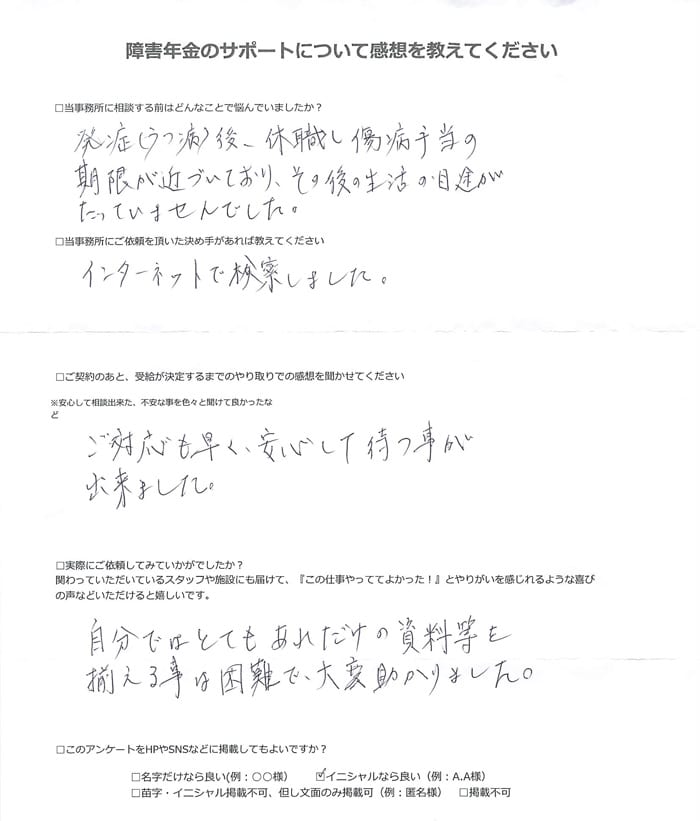 障害年金のサポートについて感想を教えてください
□当事務所に相談する前はどんなことで悩んでいましたか？
発症(うつ病)後、休職し傷病手当の
期限が近づいており、その後の生活の目途が
たっていませんでした。
□当事務所にご依頼を頂いた決め手があれば教えてください
インターネットで検索しました。
□ご契約のあと、受給が決定するまでのやり取りでの感想を聞かせてください
※安心して相談出来た、不安な事を色々と聞けて良かったな
ど
ご対応も早く、安心して待つ事が
出来ました。
□実際にご依頼してみていかがでしたか？
関わっていただいているスタッフや施設にも届けて、『この仕事やっててよかった！』とやりがいを感じれるような喜び
の声などいただけると嬉しいです。
自分ではとてもあれだけの資料等を
揃える事は困難で、大変助かりました。
□このアンケートをHPやSNSなどに掲載してもよいですか？
□名字だけなら良い(例：〇〇様) ☑イニシャルなら良い（例：A.A様）
□苗字・イニシャル掲載不可、但し文面のみ掲載可（例：匿名様） □掲載不可